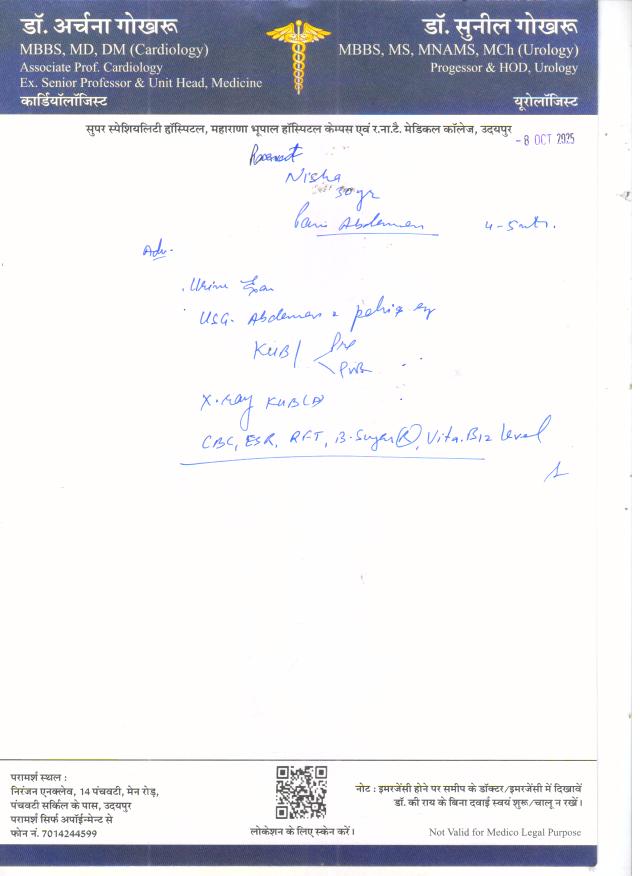 डॉ. अर्चना गोखरू
MBBS, MD, DM (Cardiology)
Associate Prof. Cardiology
Ex. Senior Professor & Unit Head, Medicine
कार्डियॉलॉजिस्ट
डॉ. सुनील गोखरू
MBBS, MS, MNAMS, MCh (Urology)
Progessor & HOD, Urology
यूरोलॉजिस्ट
सुपर स्पेशियलिटी हॉस्पिटल, महाराणा भूपाल हॉस्पिटल केम्पस एवं र.ना.टै. मेडिकल कॉलेज, उदयपुर
-8 OCT 2025
Nisha
30 yr
Pain Abdomen 4-5 mts.
Adv.
. Urine Exam
. USG. Abdomen & pelvis
KUB
Pre
X-ray KUB
CBC, ESR, RFT, B. Sugar (R), Vita. B12 level
परामर्श स्थल :
निरंजन एनक्लेव, 14 पंचवटी, मेन रोड़,
पंचवटी सर्किल के पास, उदयपुर
परामर्श सिर्फ अपॉईन्मेन्ट से
फोन नं. 7014244599
लोकेशन के लिए स्केन करें।
नोट : इमरजेंसी होने पर समीप के डॉक्टर/इमरजेंसी में दिखावें
डॉ. की राय के बिना दवाई स्वयं शुरू/चालू न रखें।
Not Valid for Medico Legal Purpose